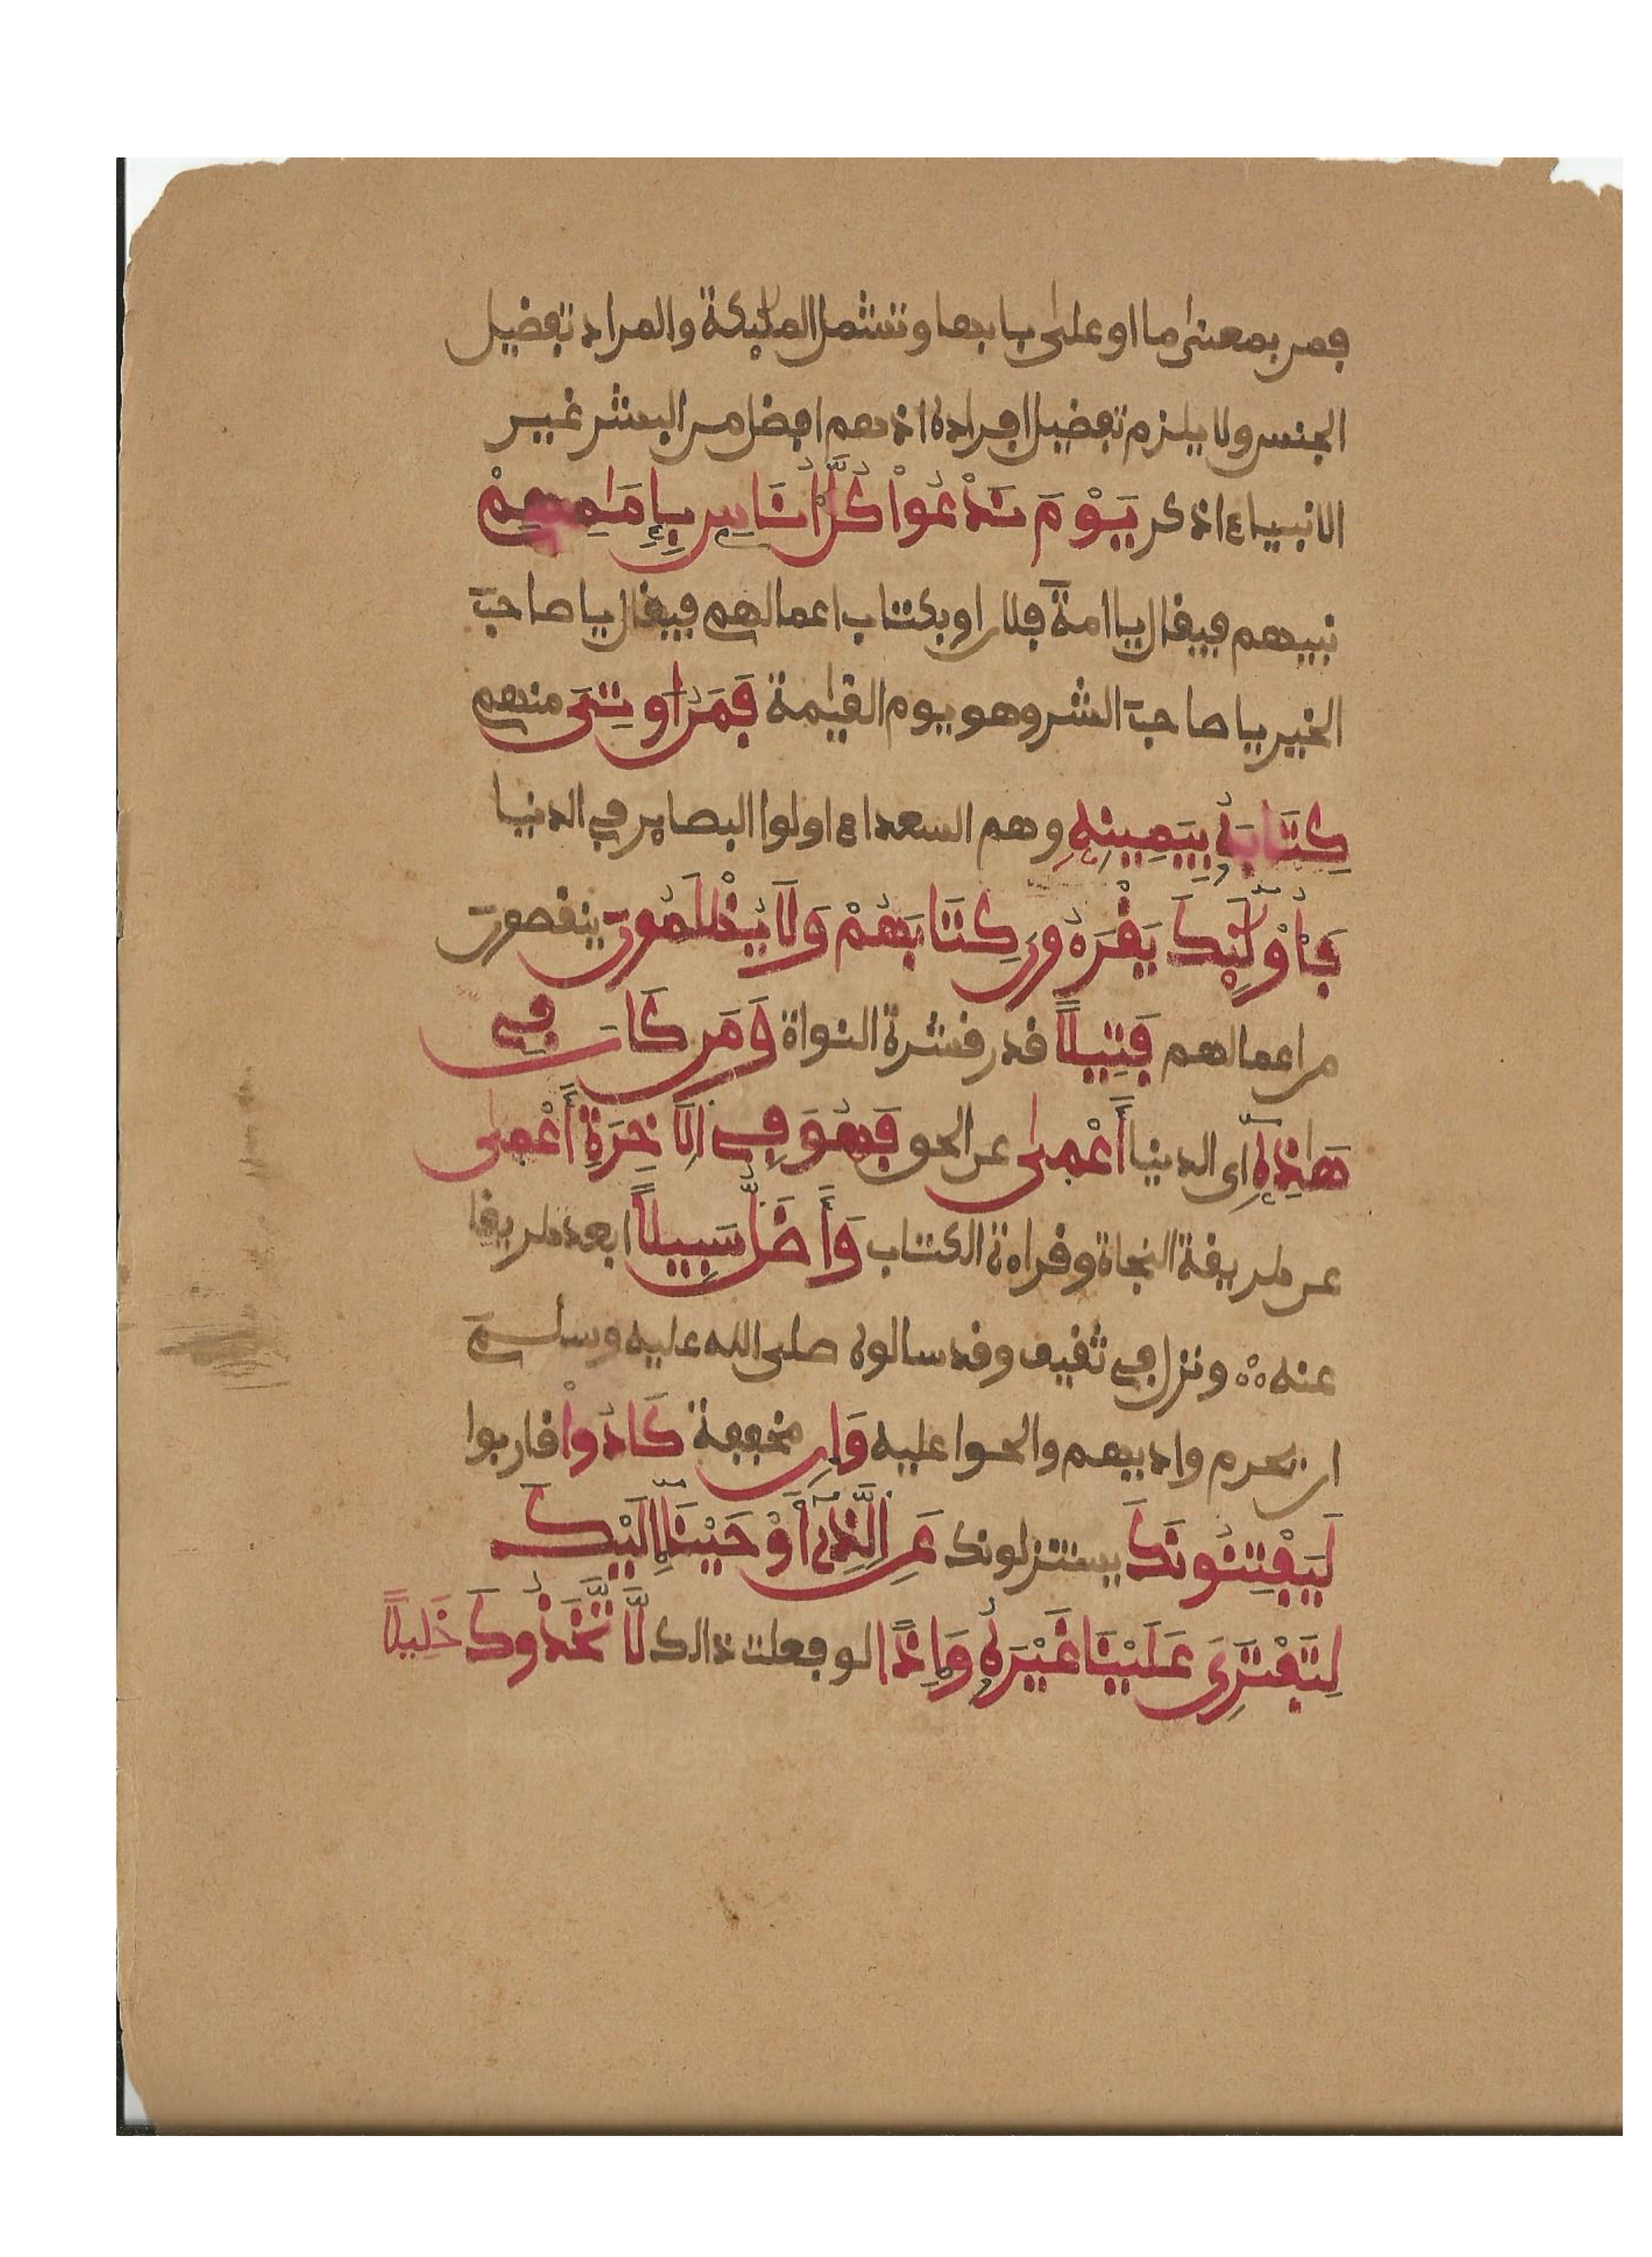 فمن بمعنى ما او على بابها وتشمل المليكة والمراد تفضيل
الجنس ولا يلزم تفضيل افراده اذ هم افضل من البشر غير
الانبياء اذكر يَوْمَ نَدْعُواْ كُلَّ أُنَاسٍ بِإِمَامِهِمْ
نبيهم فيقال يا امة فلان او بكتاب اعمالهم فيقال يا صاحب
الخير يا صاحب الشر وهو يوم القيمة فَمَنُ اوتِىَ منهم
كِتَابَهُ بِيَمِينِهِ وهم السعداء اولوا البصاير في الدنيا
فَأُوْلَٰئِكَ يَقْرَءُونَ كِتَابَهُمْ وَلَا يُظْلَمُونَ ينقصون
من اعمالهم فَتِيلًا قدر قشرة النواة وَمَن كَانَ فِي
هَٰذِهِ أى الدنيا أَعْمَىٰ عن الحق فَهُوَ فِي الَاخِرَةِ أَعْمَىٰ
عن طريقة النجاة وقراءة الكتاب وَأَضَلُّ سَبِيلًا ابعد طريقا
عنه ونزل في ثقيف وقد سالوه صلى الله عليه وسلم
ان يحرم واديهم والحوا عليه وَإِن مخففة كَادُواْ قاربوا
لَيَفْتِنُونَكَ يستنزلونك عَنِ الَّذِى أَوْحَيْنَا إِلَيْكَ
لِتَفْتَرِىَ عَلَيْنَا غَيْرَهُ وَإِذًا لو فعلت ذالك لَّاتَّخَذُوكَ خَلِيلًا